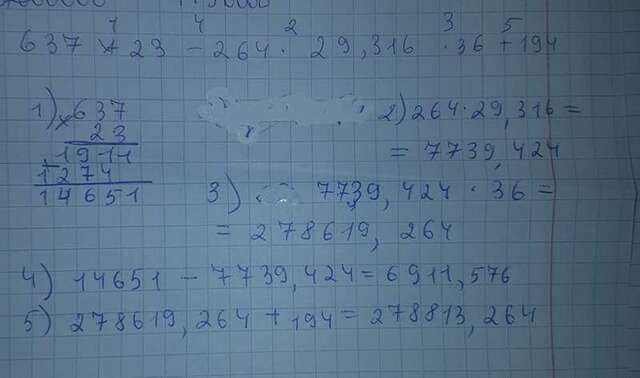 1 4 2 3 5
637 × 23 - 264 · 29,316 · 36 + 194
1) × 637
23
1911
1274
14651
2) 264 · 29,316 =
= 7739,424
3) 7739,424 · 36 =
= 278619,264
4) 14651 - 7739,424 = 6911,576
5) 278619,264 + 194 = 278813,264